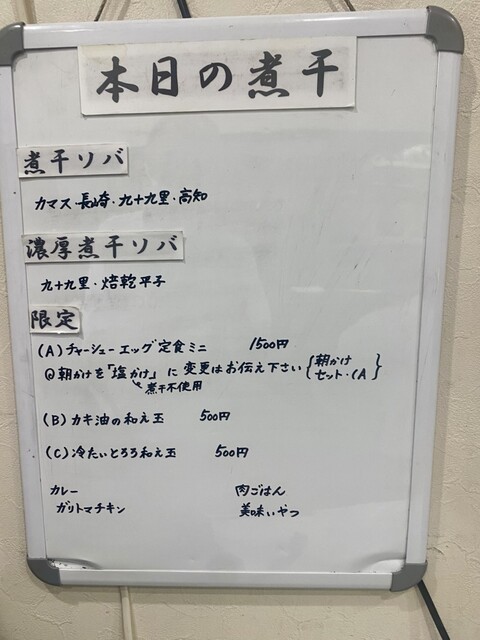 本日の煮干
煮干ソバ
カマス 長崎・九十九里・高知
濃厚煮干ソバ
九十九里・焙乾平子
限定
(A) チャーシューエッグ定食ミニ 1500円
◎朝かけを「塩かけ」に変更はお伝え下さい {朝かけ セット・(A}
煮干不使用
(B) カキ油の和え玉 500円
(C) 冷たいとろろ和え玉 500円
カレー 肉ごはん
ガリトマチキン 美味いやつ